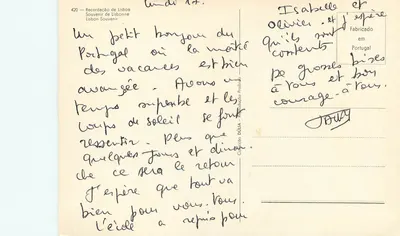 420 — Recordação de Lisboa
Souvenir de Lisbonne
Lisbon Souvenir
Lundi 17.
Un petit bonjour du
Portugal où la moitié
des vacances est bien
avancée. Avons un
temps superbe et les
coups de soleil se font
ressentir. Plus que
quelques jours et diman-
che ce sera le retour
J'espère que tout va
bien pour vous tous.
L'école a repris pour
Isabelle et
Olivier. et j'espère
qu'ils sont
contents
De grosses bises
à tous et bon
courage à tous.
Fabricado
em
Portugal